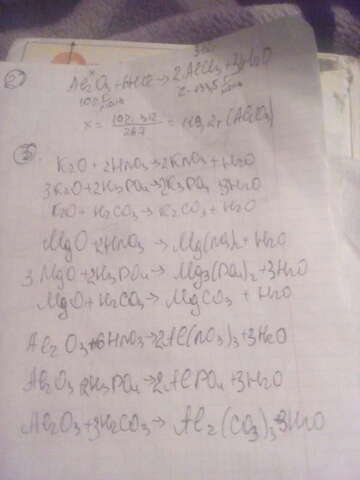 2)
Al₂O₃ + 6HCl → 2AlCl₃ + 3H₂O
2·133,5 г
x = 102·312 / 267 = 119,2 г (Al₂O₃)
3)
K₂O + 2HNO₃ → 2KNO₃ + H₂O
3K₂O + 2H₃PO₄ → 2K₃PO₄ 3H₂O
K₂O + H₂CO₃ → K₂CO₃ + H₂O
MgO 2HNO₃ → Mg(NO₃)₂ + H₂O
3 MgO + 2H₃PO₄ → Mg₃(PO₄)₂ + 3H₂O
MgO + H₂CO₃ → MgCO₃ + H₂O
Al₂O₃ + 6HNO₃ → 2Al(NO₃)₃ + 3H₂O
Al₂O₃ 2H₃PO₄ → 2AlPO₄ + 3H₂O
Al₂O₃ + 3H₂CO₃ → Al₂(CO₃)₃ 3H₂O